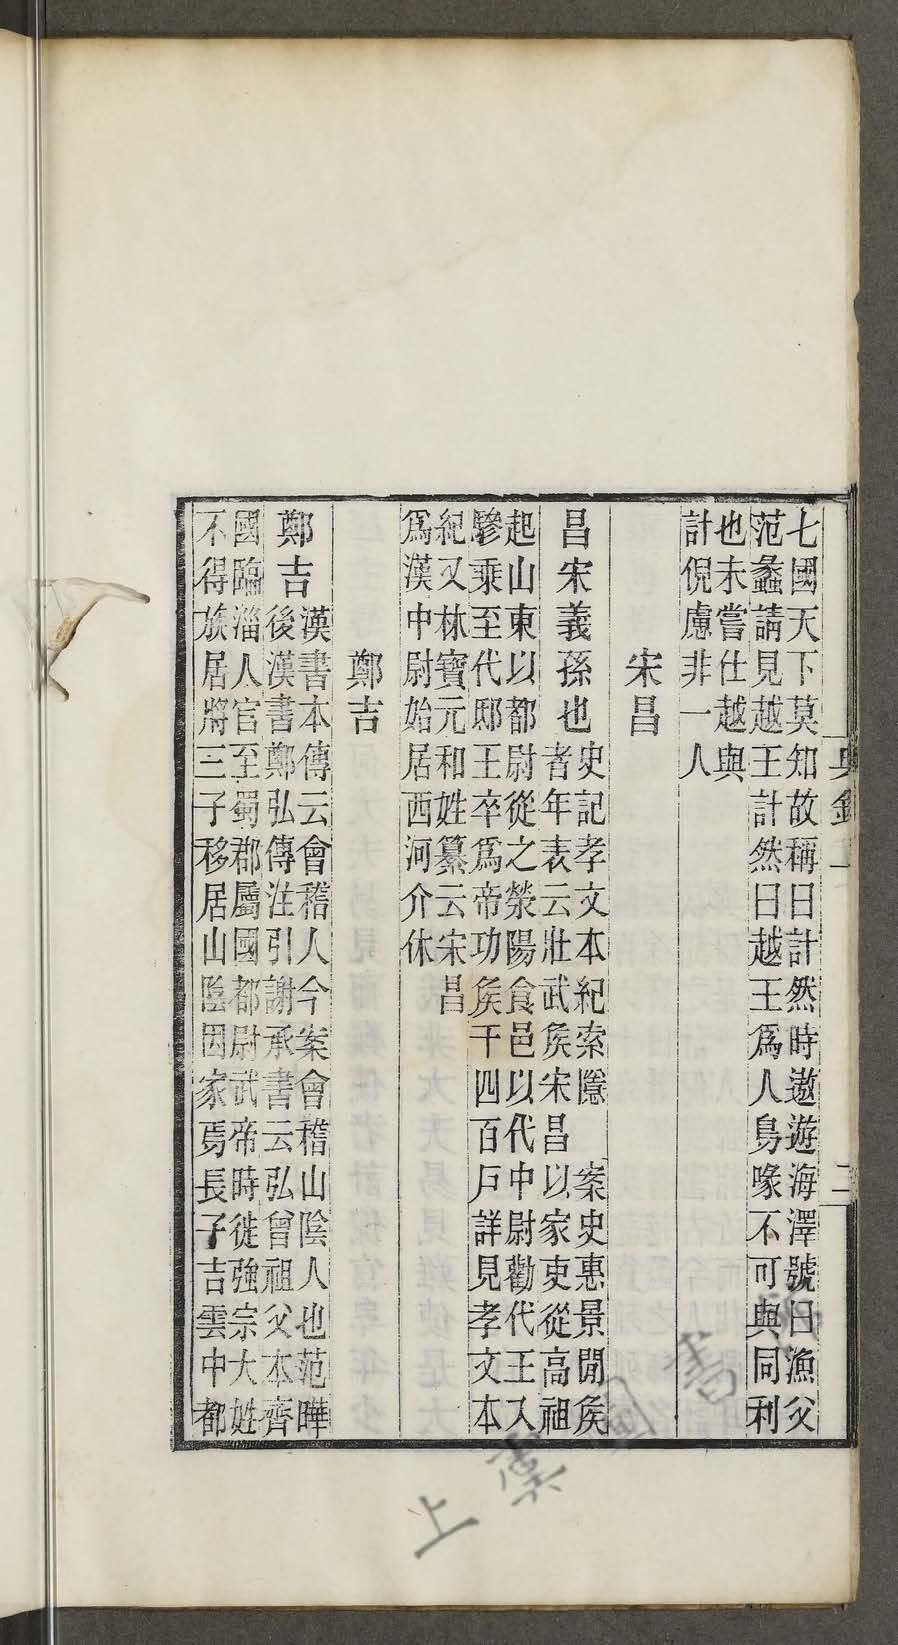 七國天下莫知故稱曰計然時遨遊海澤號曰漁父
范蠡請見越王計然曰越王爲人鳥喙不可與同利
也未嘗仕越與
計倪慮非一人
宋昌
昌宋義孫也
史記孝文本紀索隱
案史惠景閒矦
者年表云壯武矦宋昌以家吏從高祖
起山東以都尉從之滎陽食邑以代中尉勸代王入
驂乘至代邸王卒爲帝功矦千四百戸詳見孝文本
紀又林寶元和姓纂云宋昌
爲漢中尉始居西河介休
鄭吉
鄭吉
漢書本傳云會稽人今案會稽山陰人也范曄
後漢書鄭弘傳注引謝承書云弘曾祖父本齊
國臨淄人官至蜀郡屬國都尉武帝時徙強宗大姓
不得族居將三子移居山陰因家焉長子吉雲中都
二
上虞圖書